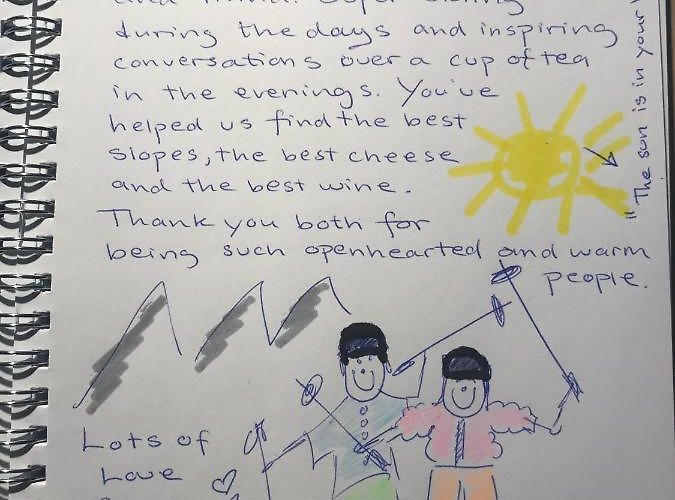 during the days and inspiring
conversations over a cup of tea
in the evenings. You've
helped us find the best
slopes, the best cheese
and the best wine.
Thank you both for
being such openhearted and warm
people.
"The sun is in your
Lots of
Love